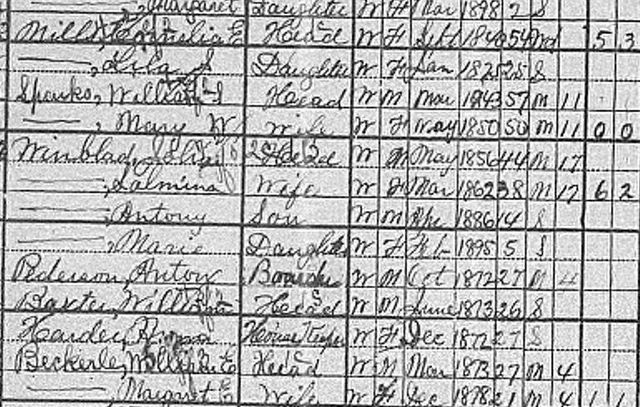 Margaret Daughter W F Mar 1898 2 S
Head W F Sept 54 Wd 5 3
Daughter W F Jan S
Sparks, William S Head W M Mar 1843 57 M 11
, Mary W Wife W F May 1850 50 M 11 0 0
Winblad, Head W M May 1856 44 M 17
, Salmina Wife W F Mar 1862 38 M 17 6 2
, Antony Son W M Apr 1886 14 S
, Marie Daughter W F Feb 1895 5 S
Pederson, Anton Boarder W M Oct 1872 27 M 4
Baxter, William Head W M June 1873 26 S
House Keeper W F Dec 1872 27 S
Beckerle, William E Head W M Mar 1873 27 M 4
, Margaret E Wife W F Dec 1878 21 M 4 1 1